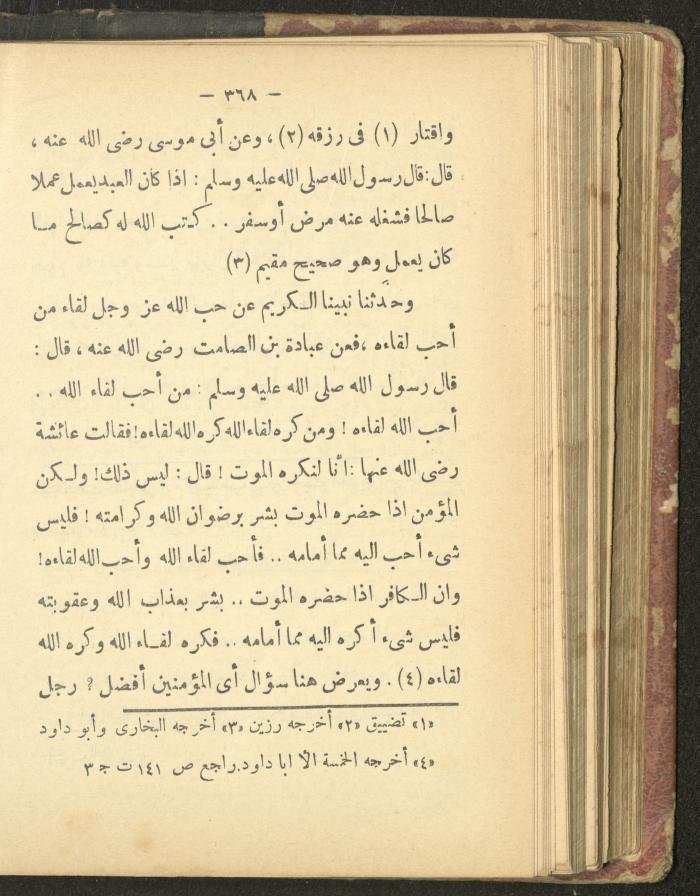 — ٣٦٨ —
واقتار (١) فى رزقه (٢) ، وعن أبى موسى رضى الله عنه ،
قال : قال رسول الله صلى الله عليه وسلم : اذا كان العبد يعمل عملا
صالحا فشغله عنه مرض أو سفر . . كتب الله له كصالح مــا
كان يعمل وهو صحيح مقيم (٣)
وحدّثنا نبينا الـكريم عن حب الله عز وجل لقاء من
أحب لقاءه ، فعن عبادة بن الصامت رضى الله عنه ، قال :
قال رسول الله صلى الله عليه وسلم : من أحب لقاء الله . .
أحب الله لقاءه ! ومن كره لقاء الله كره الله لقاءه ! فقالت عائشة
رضى الله عنها : انّا لنكره الموت ! قال : ليس ذلك ! ولـكن
المؤمن اذا حضره الموت بشر برضوان الله وكرامته ! فليس
شىء أحب اليه مما أمامه . . فأحب لقاء الله وأحب الله لقاءه !
وان الـكافر اذا حضره الموت . . بشر بعذاب الله وعقوبته
فليس شىء أكره اليه مما أمامه . . فكره لقـاء الله وكره الله
لقاءه (٤) . ويعرض هنا سؤال أى المؤمنين أفضل ؟ رجل
«١» تضييق «٢» أخرجه رزين «٣» أخرجه البخارى وأبو داود
«٤» أخرجه الخمسة الاّ ابا داود. راجع ص ١٤١ ت ج ٣